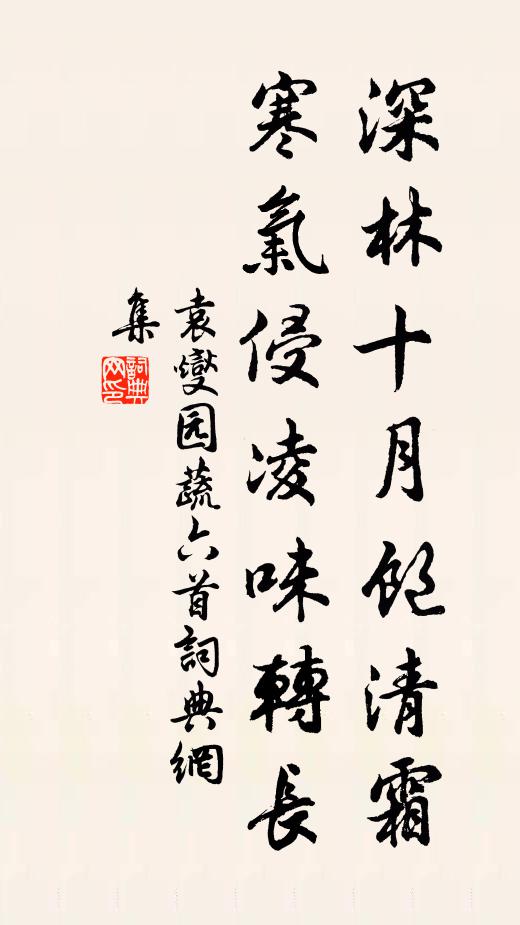 深林十月飽清霜
寒氣侵凌味轉長
袁燮园蔬六首詞典網
集
詞典
网印